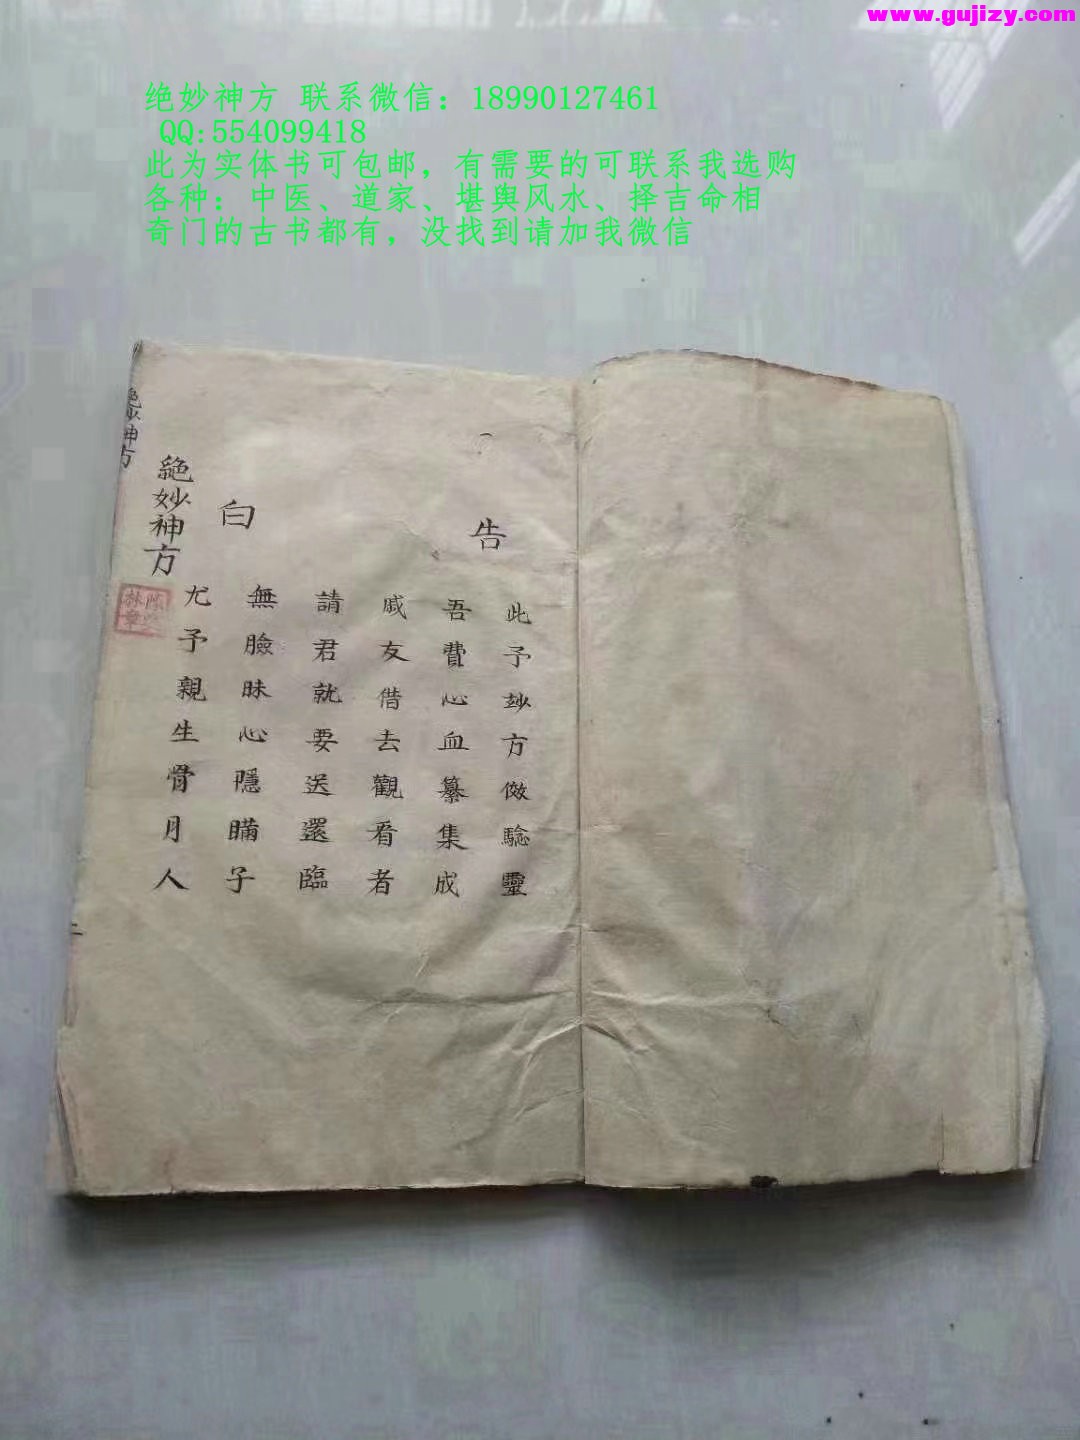 www.gujizy.com
绝妙神方 联系微信：18990127461
QQ:554099418
此为实体书可包邮，有需要的可联系我选购
各种：中医、道家、堪舆风水、择吉命相
奇门的古书都有，没找到请加我微信
告
白
此予玅方傚驗靈
吾費心血纂集成
戚友借去觀看者
請君就要送還臨
無臉昧心隱瞞子
尤予親生骨月人
絕妙神方
絕妙神方
二